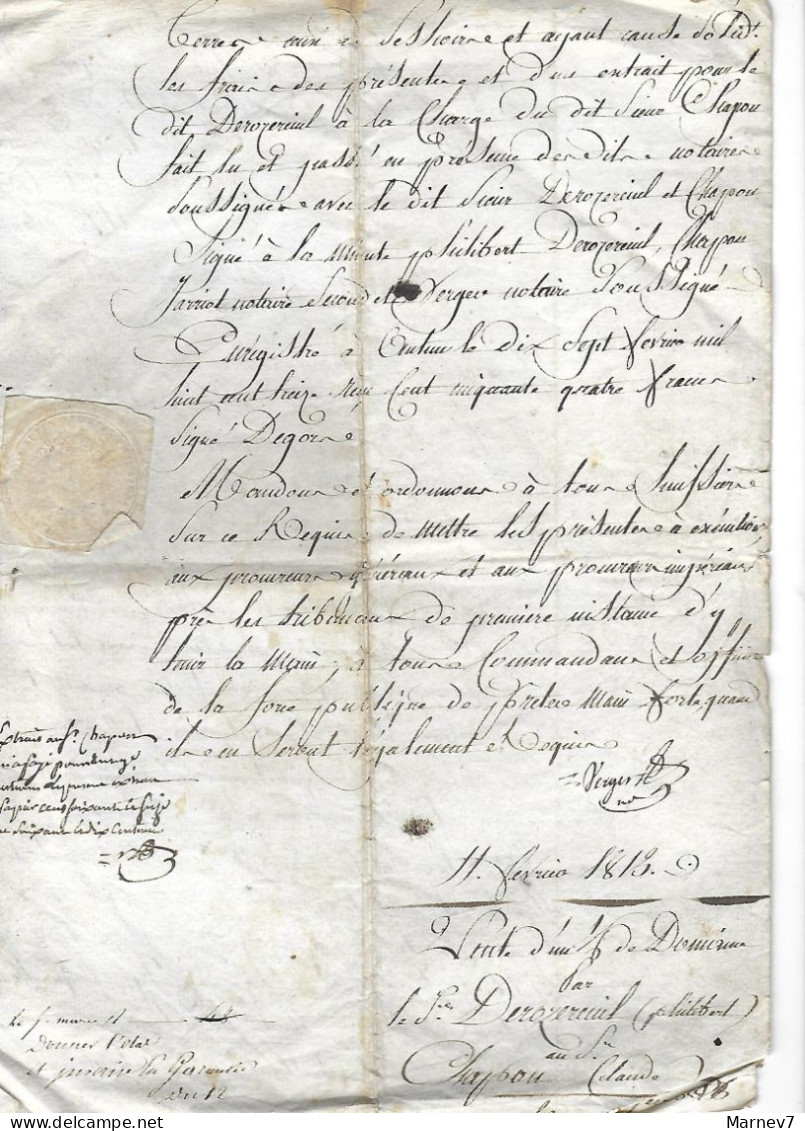 les frais des présentes et d'un extrait pour le
dit Derozereuil à la Charge du dit Sieur Chapon
fait lu et passé en présence des dits notaires
Soussignés avec le dit Sieur Derozereuil et Chapon
Signé à la Minute philibert Derozereuil, Chapon
Jarriot notaire Second et Verger notaire Soussigné
Enregistré à Autun le dix Sept fevrier mil
huit cent treize Reçu Cent cinquante quatre francs
Signé Degorné
Mandons et ordonnons à tous huissiers
Sur ce Requis de Mettre les présentes à exécution
aux procureurs généraux et aux procureurs impériaux
près les tribunaux de première instance d'y
tenir la Main, à tous Commandans et officiers
de la force publique de prêter Main forte quand
ils en Seront légalement Requis
Verger
11. fevrier 1813.
Vente d'un de Domaine
par
le Sr Derozereuil (philibert)
au Sr
Chapon Claude
Marnev7